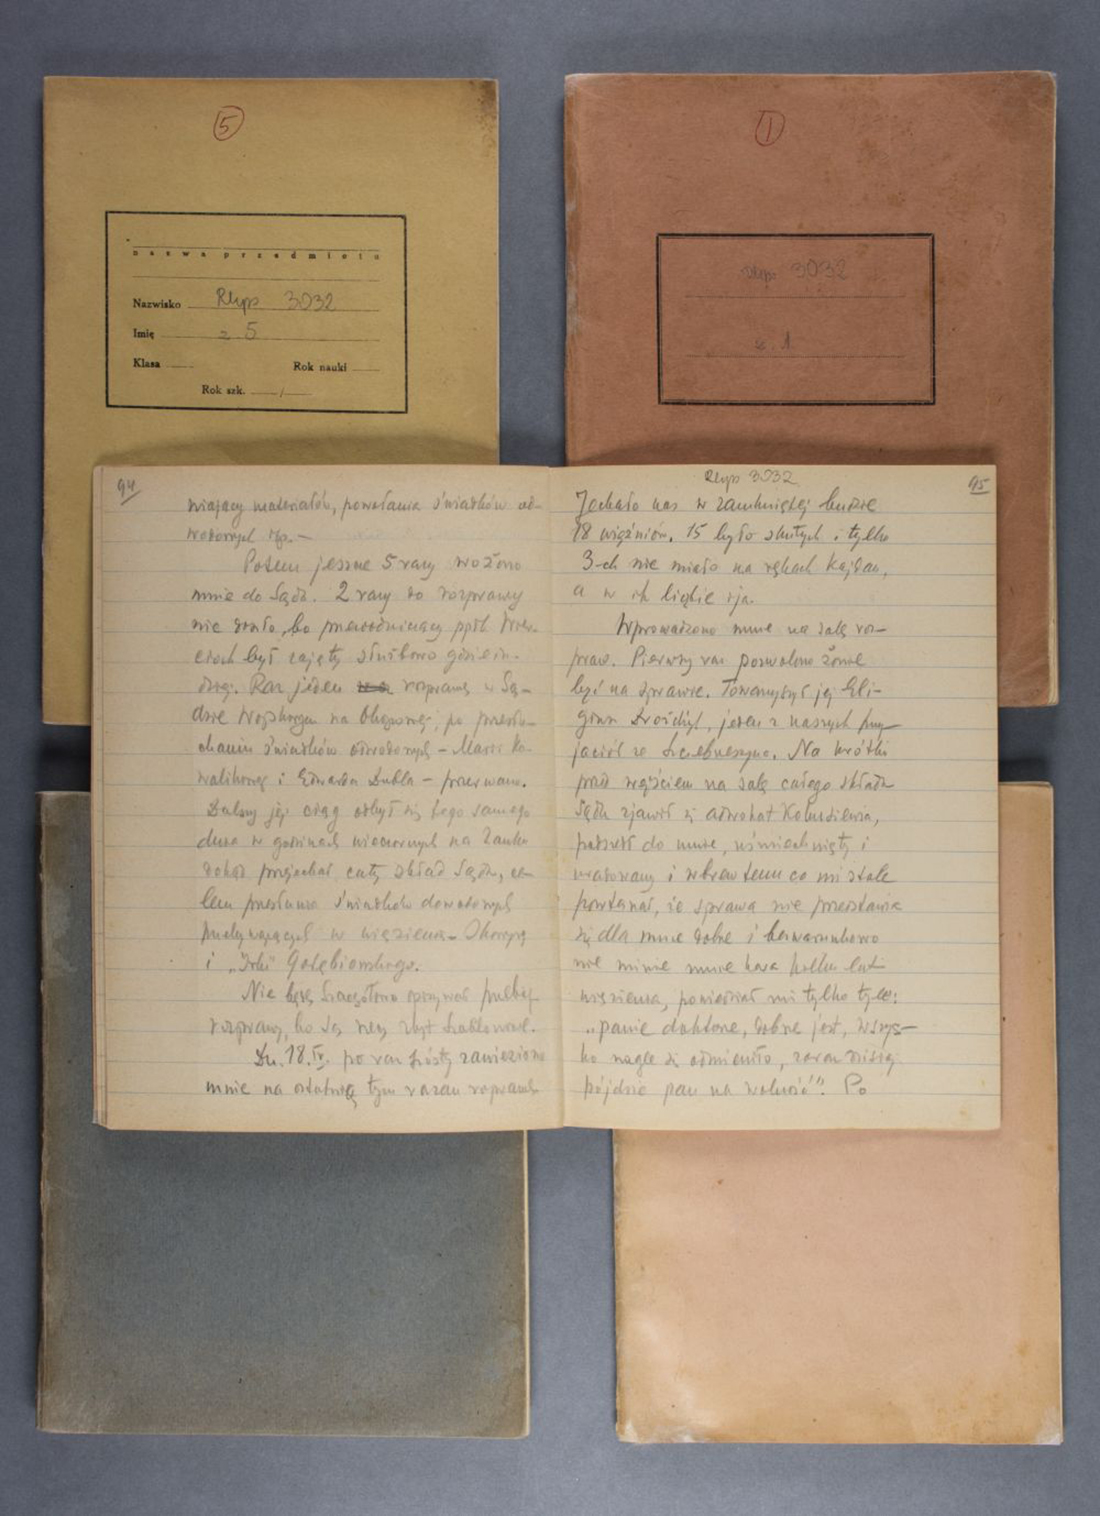 5
nazwa przedmiotu
Nazwisko Rkps 3032
Imię z 5
Klasa Rok nauki
Rok szk. /
1
Rkps 3032
z. 1
94
wiający materiałów, powołania świadków od-
wodowych itp. –
Potem jeszcze 5 razy wożono
mnie do Sądu. 2 razy do rozprawy
nie doszło, bo przewodniczący ppłk
był zajęty służbowo gdzie in-
dziej. Raz jeden rozprawę w Są-
dzie Wojskowym na po przesłu-
chaniu świadków odwodowych – Marii Ko-
walikowej i Edwarda Dubla – przerwano.
Dalszy jej ciąg odbył się tego samego
dnia w godzinach wieczornych na Zamku
dokąd przyjechał cały skład Sądu, ce-
lem świadków dowodowych
przebywających w więzieniu –
i Gołębiowskiego.
Nie będę szczegółowo opisywał przebieg
rozprawy, bo są
Dn. 18.IV. po raz szósty zawieziono
mnie na ostatnią tym razem rozprawę.
Rkps 3032
95
Jechało nas w zamkniętej budzie
18 więźniów. 15 było skutych i tylko
3-ch nie miało na rękach kajdan,
a w ich liczbie i ja.
Wprowadzono mnie na salę roz-
praw. Pierwszy raz pozwolono żonie
być na sprawie. Towarzyszył jej Eli-
giusz Drożdżyk, jeden z naszych przy-
jaciół ze Szczebrzeszyna. Na krótki
przed wejściem na salę całego składu
Sądu zjawił się adwokat
podszedł do mnie, uśmiechnięty i
uradowany i wbrew temu co mi stale
powtarzał, że sprawa nie przedstawia
się dla mnie dobrze i bezwarunkowo
nie minie mnie kara kilku lat
więzienia, powiedział mi tylko tyle:
„panie doktorze, dobrze jest, wszys-
ko nagle się odmieniło, zaraz dzisiaj
pójdzie pan na wolność". Po